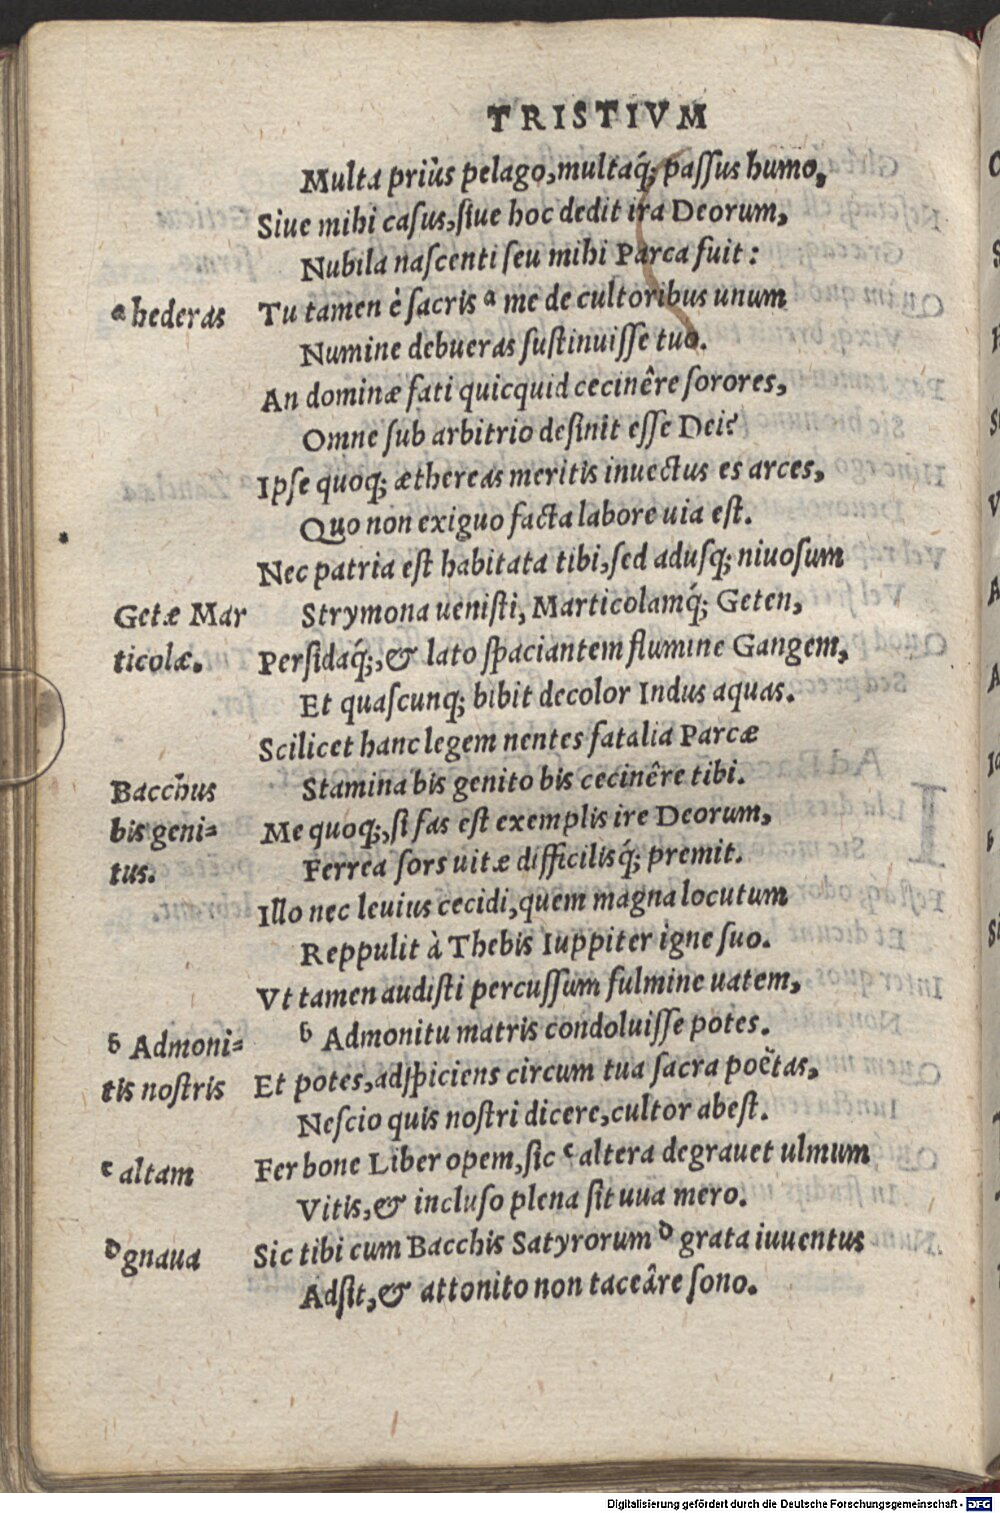 TRISTIVM
Multa priùs pelago, multaq́; paſſus humo,
Siue mihi caſus, ſiue hoc dedit ira Deorum,
Nubila naſcenti ſeu mihi Parca fuit:
ᵃ hederas
Tu tamen è ſacris ᵃ me de cultoribus unum
Numine debueras ſuſtinuiſſe tuo.
An dominæ fati quicquid cecinêre ſorores,
Omne ſub arbitrio deſinit eſſe Dei?
Ipſe quoq; æthereas meritis inuectus es arces,
Quo non exiguo facta labore uia eſt.
Nec patria eſt habitata tibi, ſed aduſq; niuoſum
Getæ Mar
Strymona ueniſti, Marticolamq́; Geten,
ticolæ.
Perſidaq́;, & lato ſpaciantem flumine Gangem,
Et quaſcunq; bibit decolor Indus aquas.
Scilicet hanc legem nentes fatalia Parcæ
Bacchus
Stamina bis genito bis cecinêre tibi.
bis geni-
Me quoq;, ſi fas eſt exemplis ire Deorum,
tus.
Ferrea ſors uitæ difficilisq́; premit.
Illo nec leuius cecidi, quem magna locutum
Reppulit à Thebis Iuppiter igne ſuo.
Vt tamen audiſti percuſſum fulmine uatem,
ᵇ Admoni-
ᵇ Admonitu matris condoluiſſe potes.
tis noſtris
Et potes, adſpiciens circum tua ſacra poëtas,
Neſcio quis noſtri dicere, cultor abeſt.
ᶜ altam
Fer bone Liber opem, ſic ᶜ altera degrauet ulmum
Vitis, & incluſo plena ſit uua mero.
ᵈ gnaua
Sic tibi cum Bacchis Satyrorum ᵈ grata iuuentus
Adſit, & attonito non taceâre ſono.
Digitalisierung gefördert durch die Deutsche Forschungsgemeinschaft - DFG